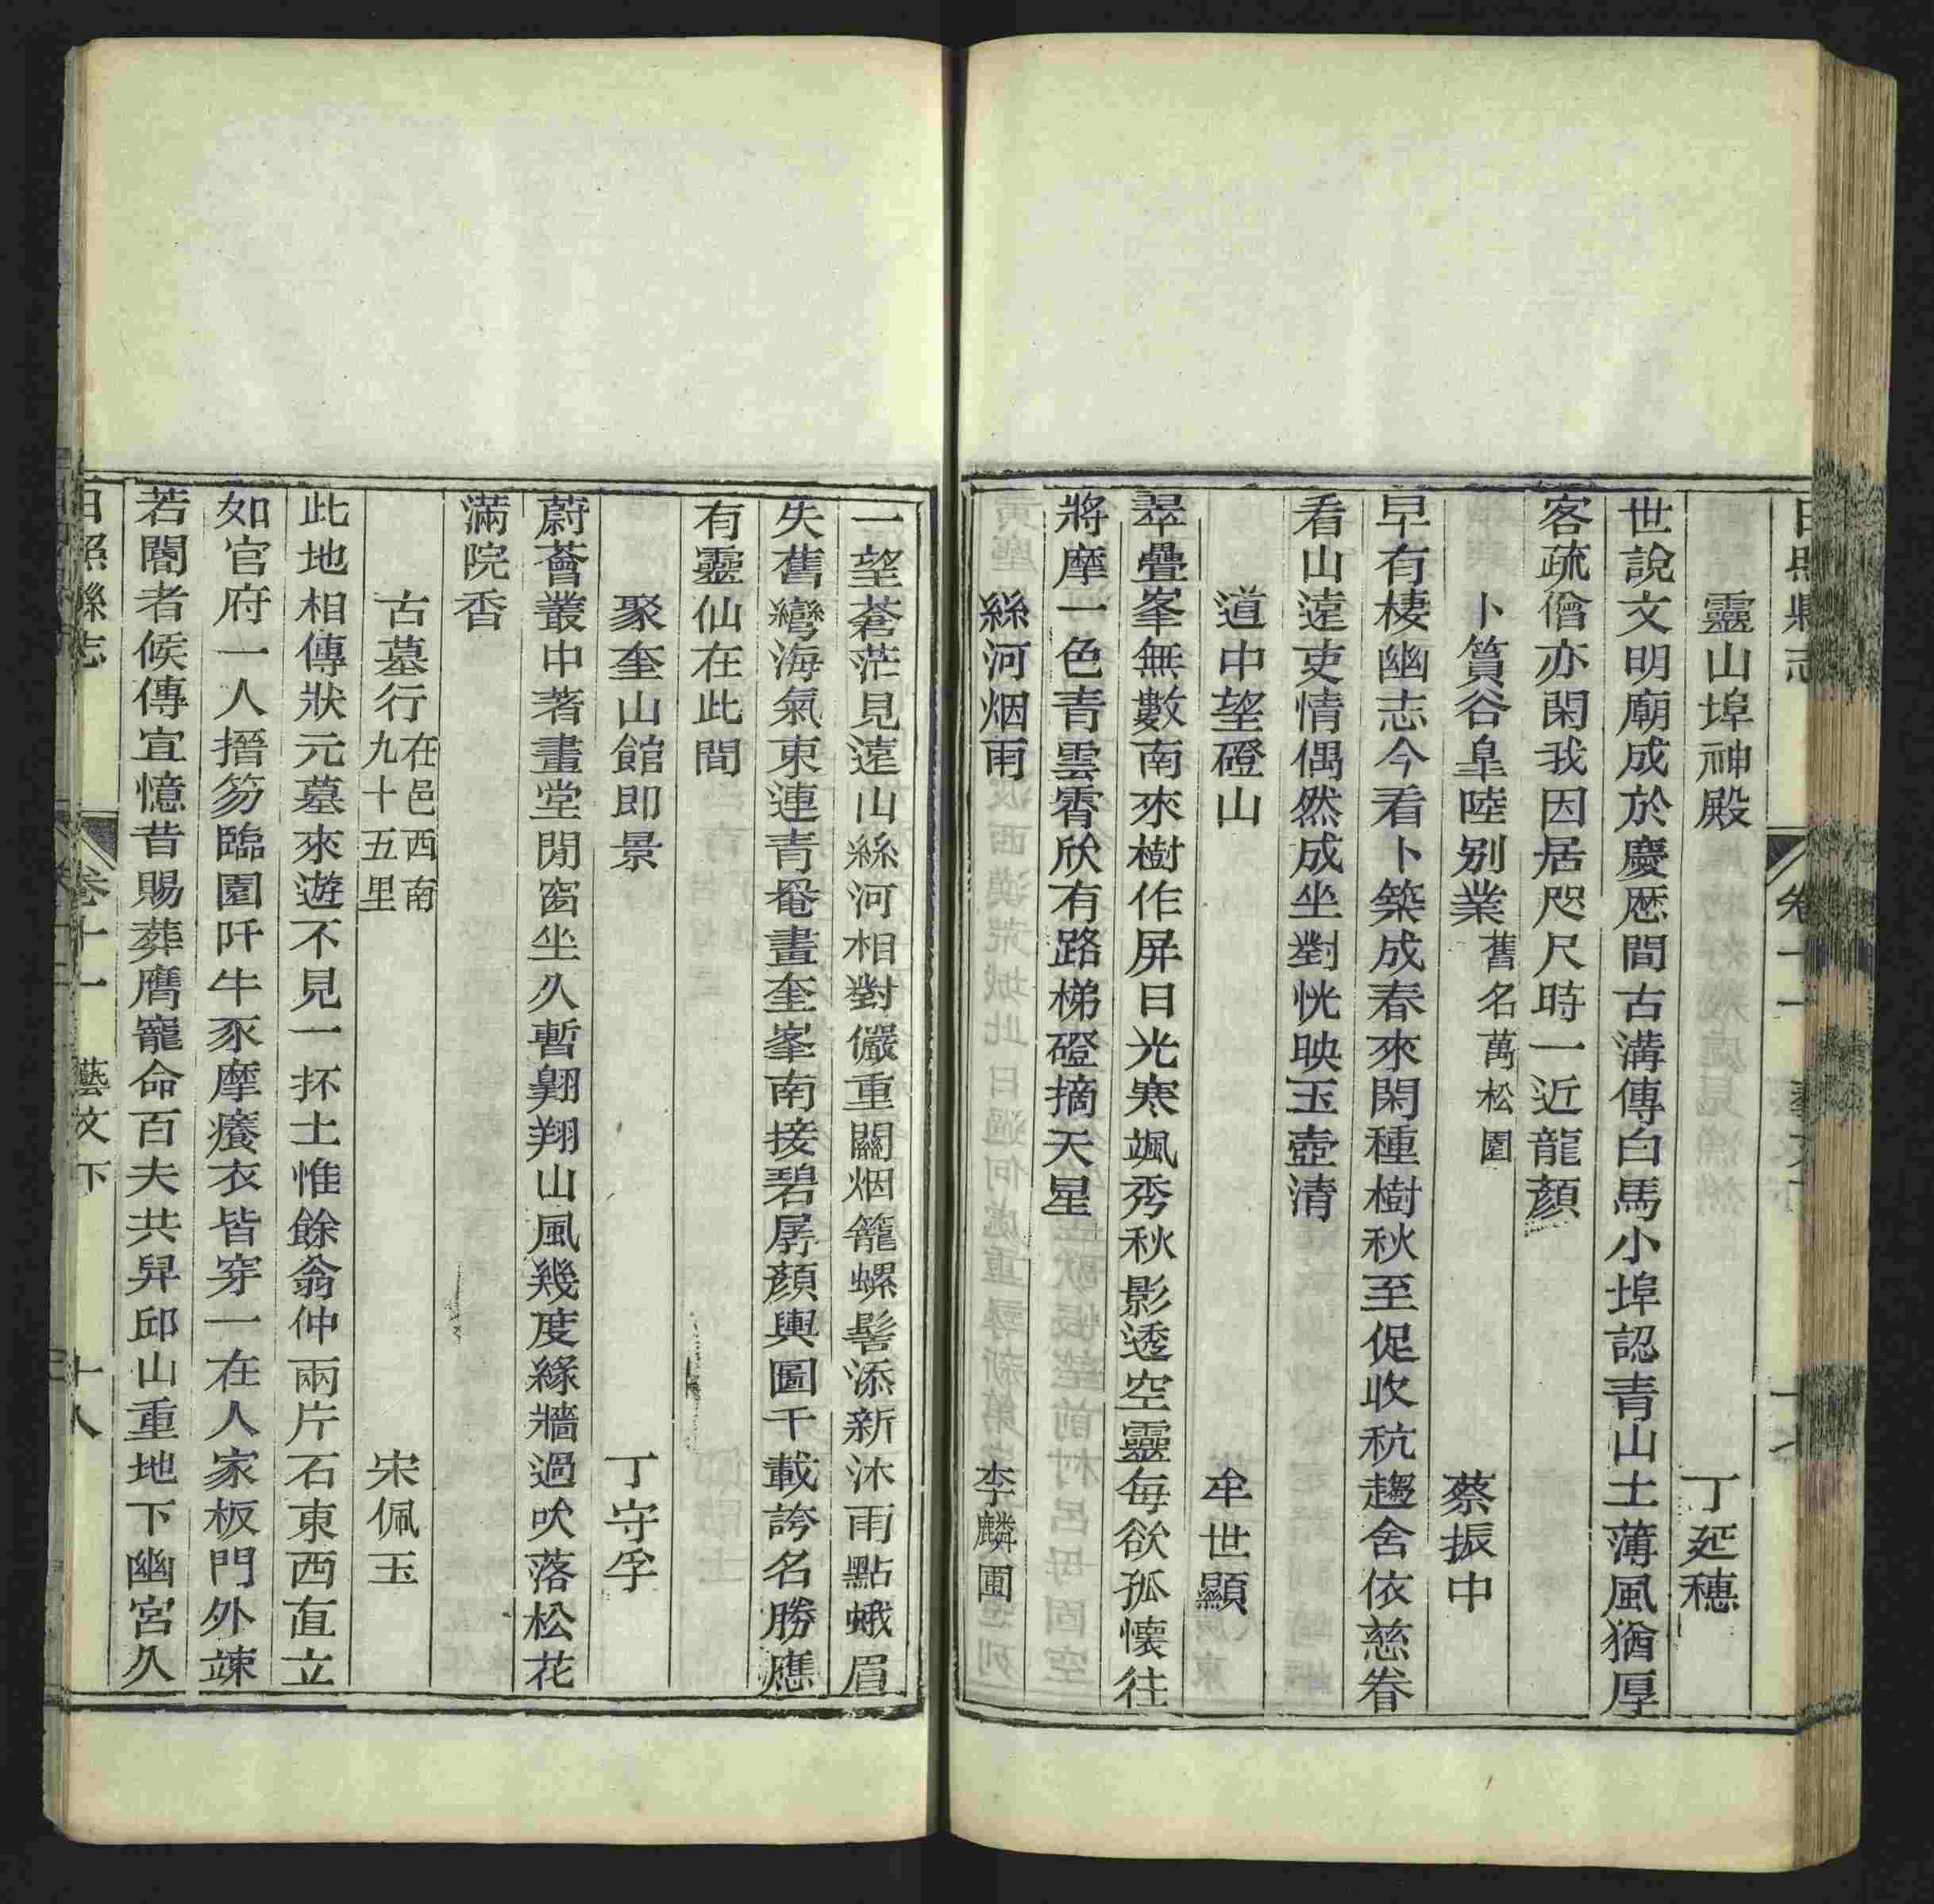 日照縣志 卷十一 藝文下 十七
靈山埠神殿 丁延穗
世說文明廟成於慶厯間古溝傳白馬小埠認青山土薄風猶厚
客疏儈亦閑我因居咫尺時一近龍顏
卜篔谷皐陸别業 舊名萬松園 蔡振中
早有棲幽志今看卜築成春來閑種樹秋至促收秔趨舍依慈眷
看山遠吏情偶然成坐對恍映玉壺清
道中望磴山 牟世顯
翠疊峯無數南來樹作屏日光寒颯秀秋影透空靈每欲孤懷往
將摩一色青雲霄欣有路梯磴摘天星
絲河烟雨 李麟圃
一望蒼茫見遠山絲河相對儼重關烟籠螺髻添新沐雨點蛾眉
失舊彎海氣東連青黿畫奎峯南接碧孱顏輿圖千載誇名勝應
有靈仙在此間
聚奎山館即景 丁守孚
蔚薈叢中著畫堂閒窗坐久暫翺翔山風幾度緣牆過吹落松花
滿院香
古墓行 在邑西南九十五里 宋佩玉
此地相傳狀元墓來遊不見一抔土惟餘翁仲兩片石東西直立
如官府一人搢笏臨園阡牛豕摩癢衣皆穿一在人家板門外竦
若閽者候傳宣憶昔賜葬膺寵命百夫共舁邱山重地下幽宮久
日照縣志 卷十一 藝文下 十八